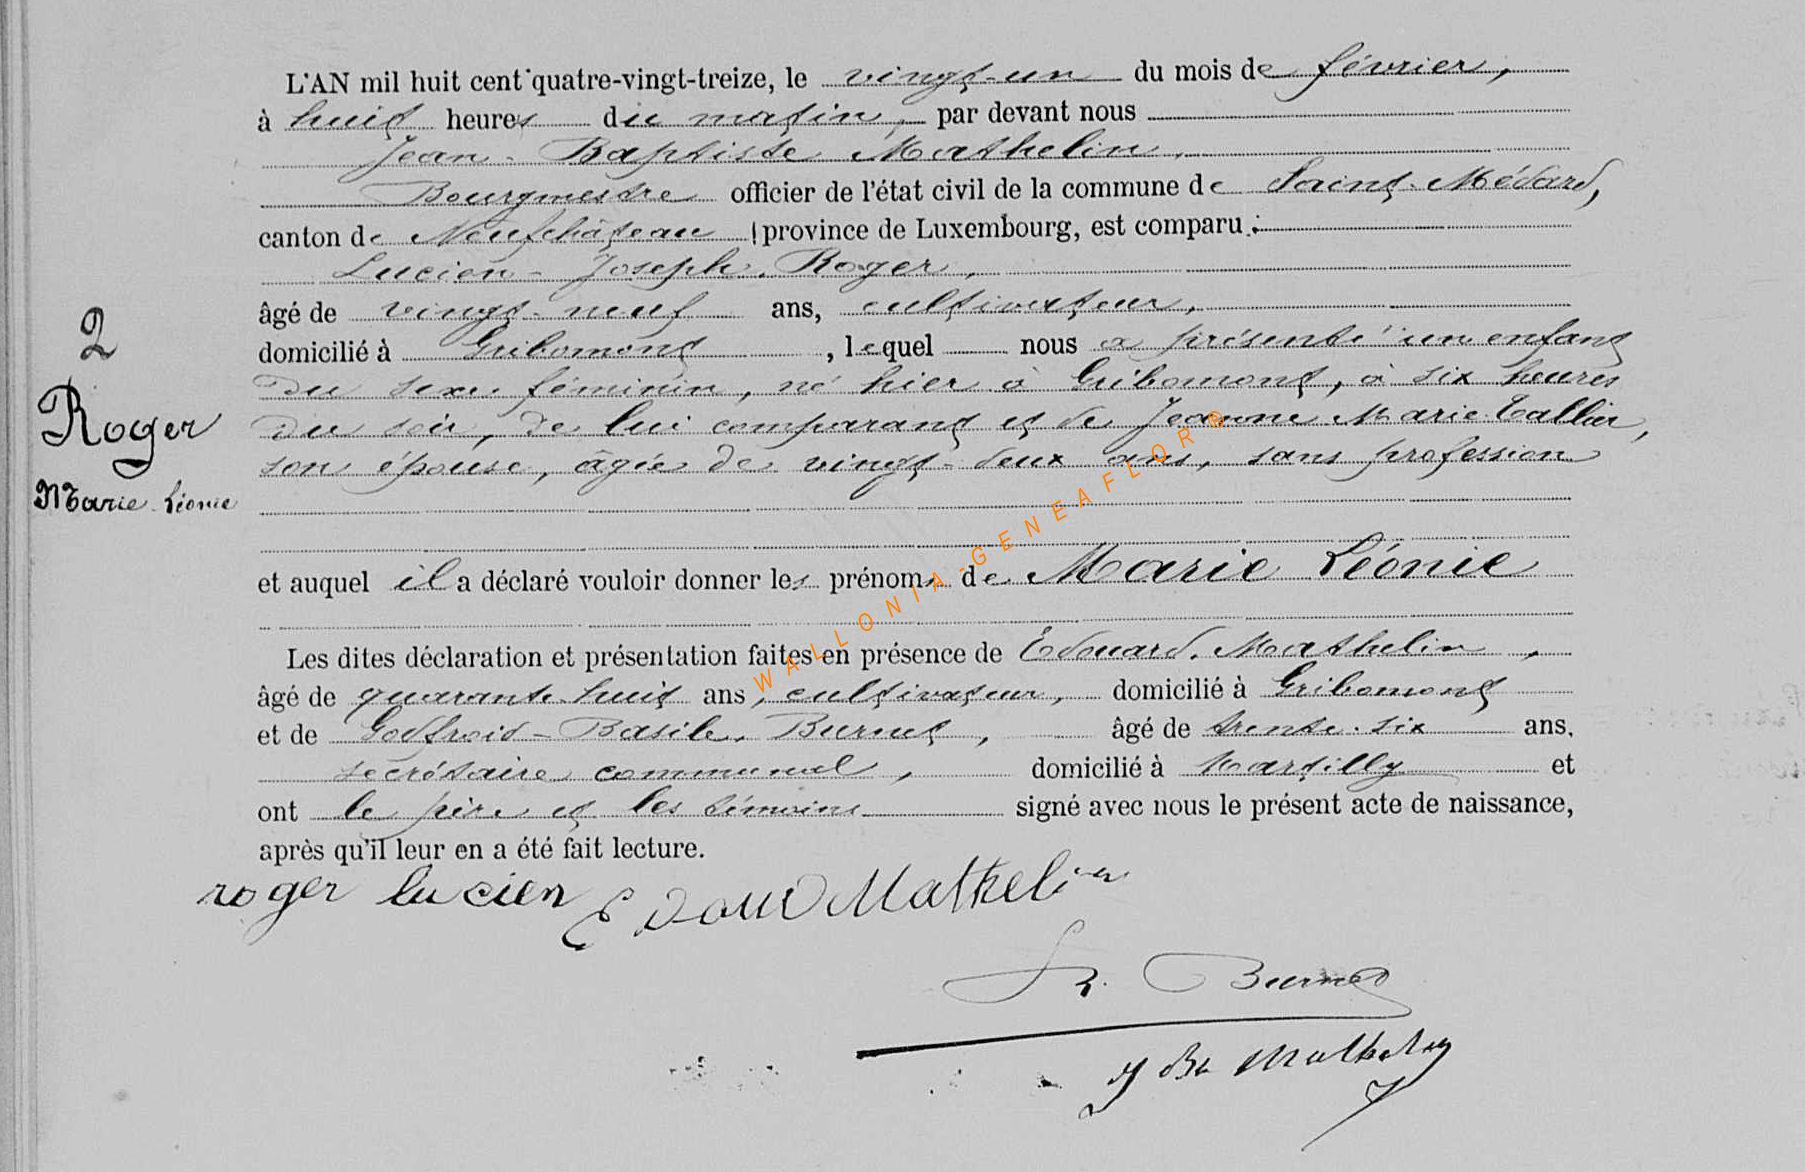 L'AN mil huit cent quatre-vingt-treize, le vingt-un du mois de février,
à huit heures du matin, par devant nous
Jean-Baptiste Mathelin,
Bourgmestre officier de l'état civil de la commune de Saint-Médard,
canton de Neufchâteau province de Luxembourg, est comparu :
Lucien-Joseph Roger,
âgé de vingt-neuf ans, cultivateur,
domicilié à Gribomont, lequel nous a présenté un enfant
du sexe féminin, né hier à Gribomont, à six heures
du soir, de lui comparant et de Jeanne Marie
son épouse, âgée de vingt-deux ans, sans profession
et auquel il a déclaré vouloir donner les prénoms de Marie Léonie
Les dites déclaration et présentation faites en présence de Edouard Mathelin,
âgé de quarante-huit ans, cultivateur, domicilié à Gribomont
et de Godfroid-Basile Burnet, âgé de trente-six ans,
secrétaire communal, domicilié à Martilly et
ont le père et les témoins signé avec nous le présent acte de naissance,
après qu'il leur en a été fait lecture.
2
Roger
Marie Léonie
roger lucien Edouard Mathelin
Burnet
J Bte Mathelin
WALLONIA-GENEAFLOR®